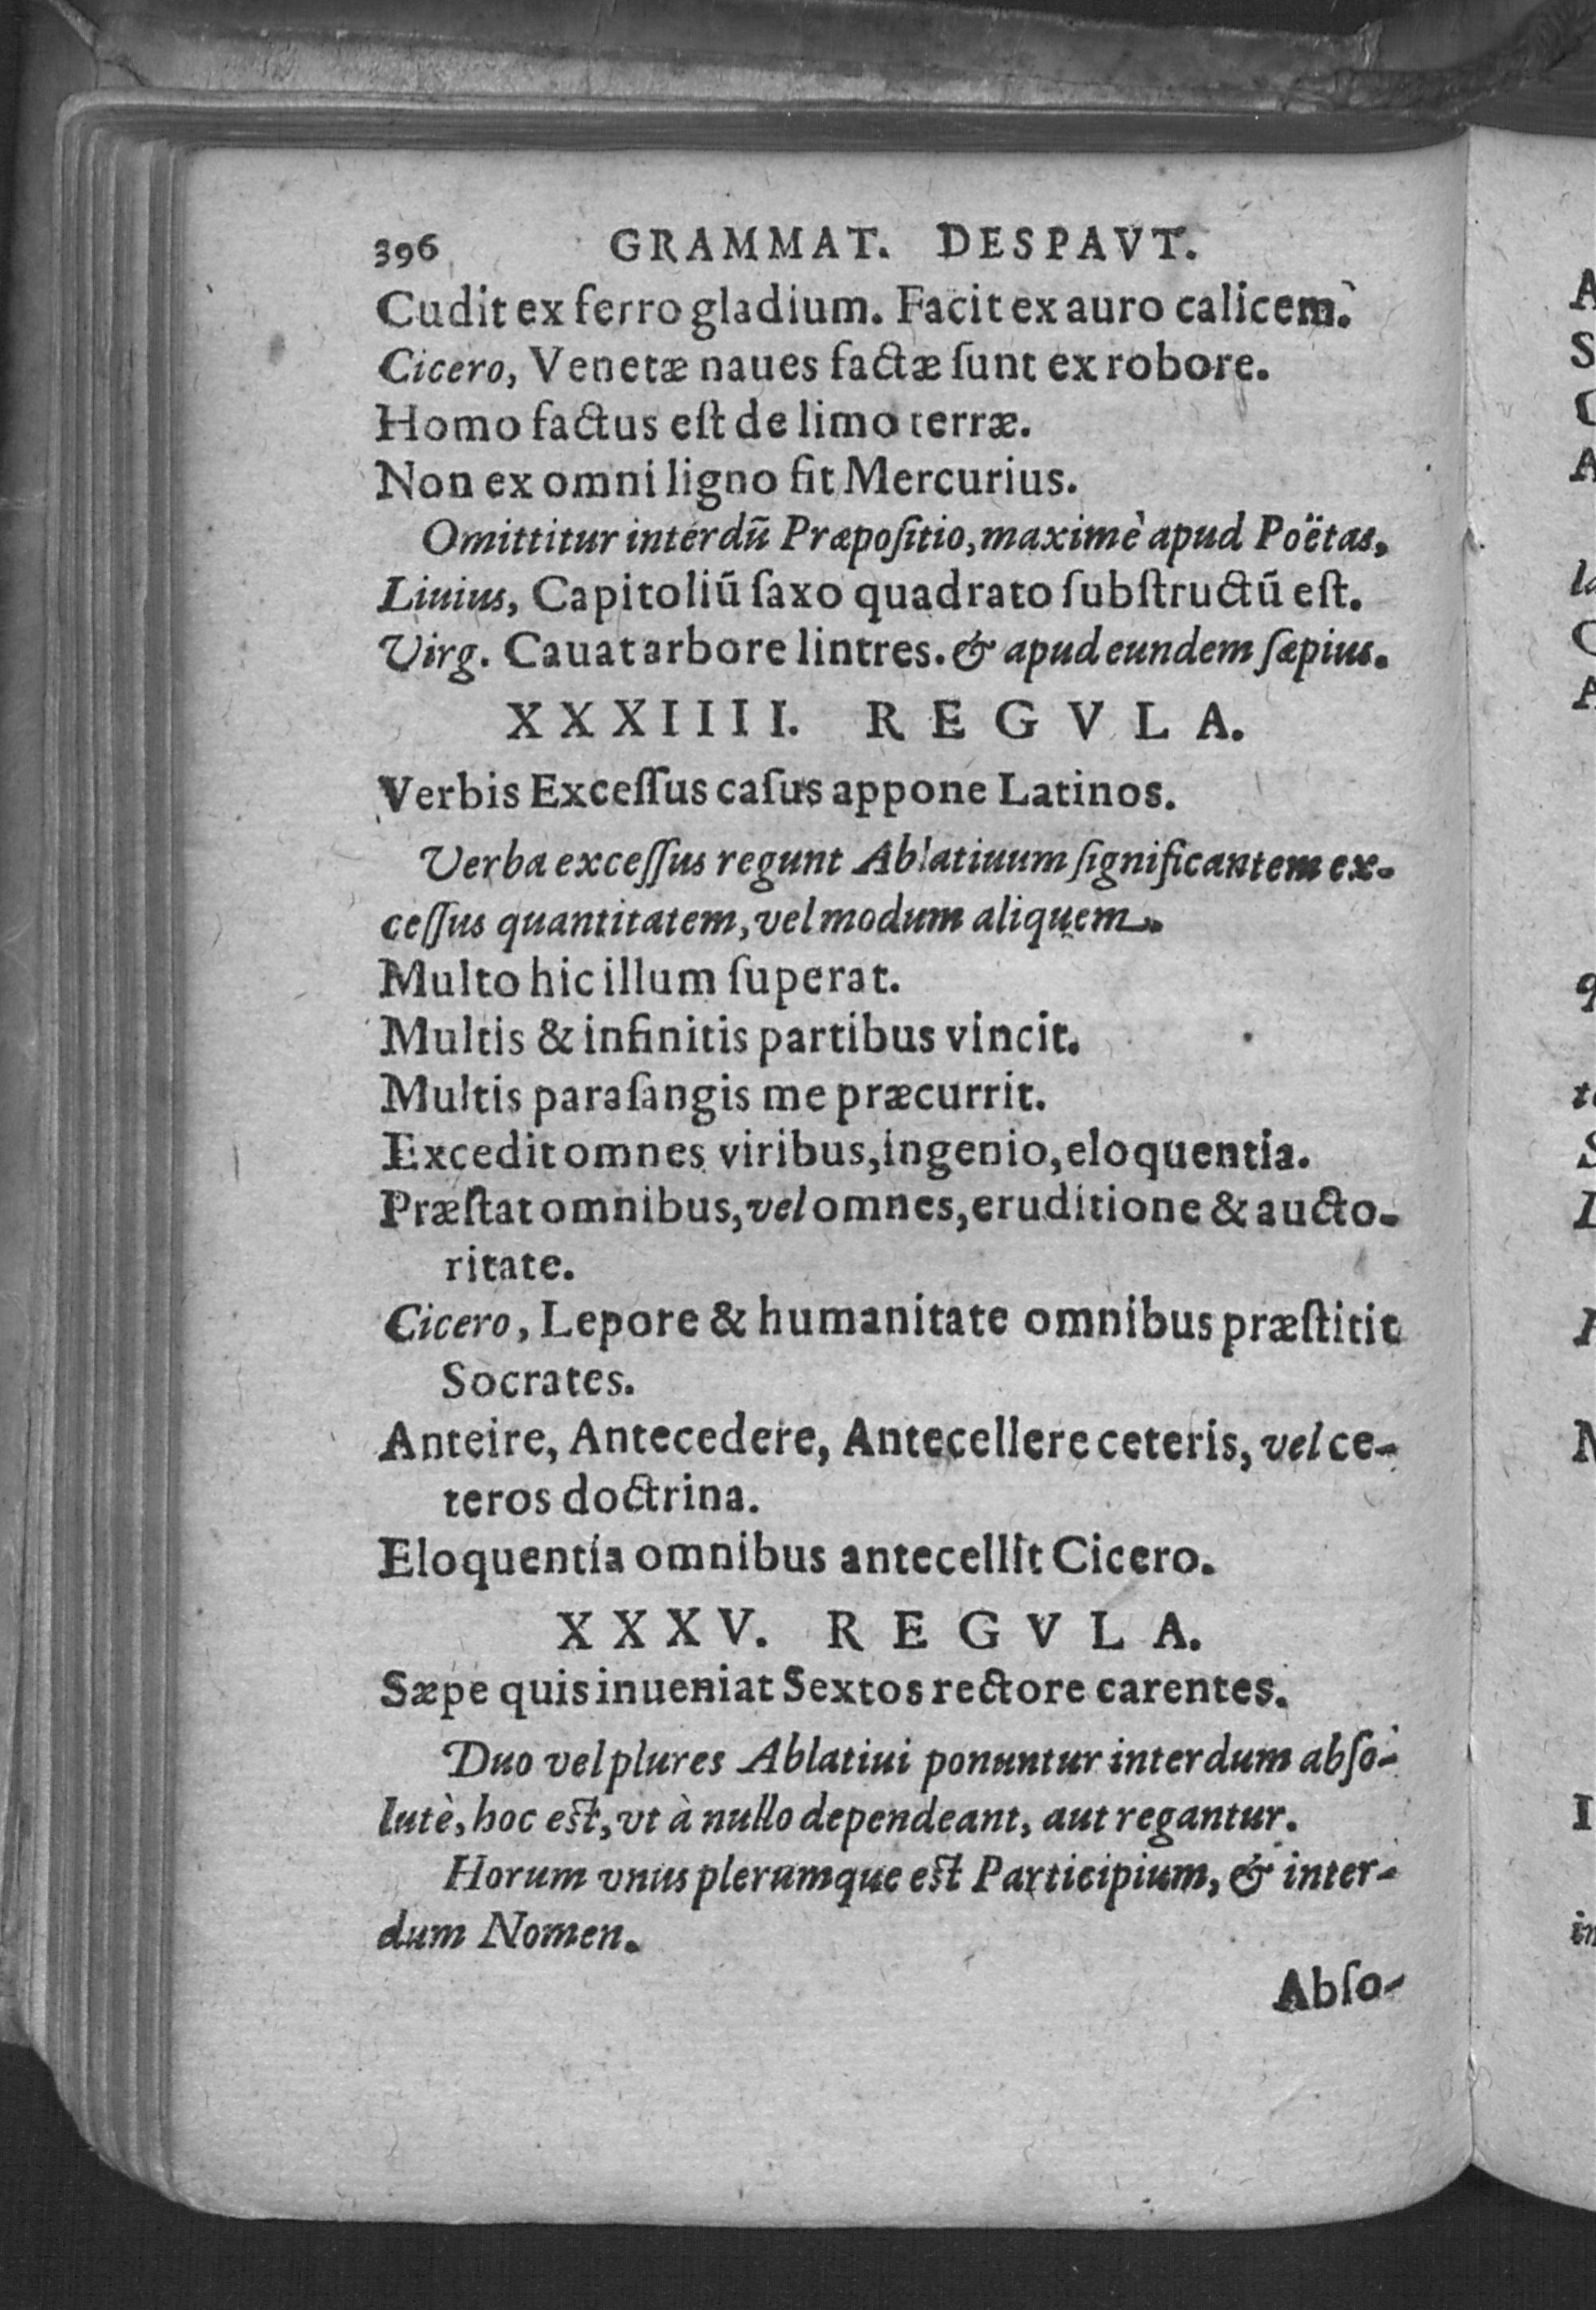 396 GRAMMAT. DESPAVT.
Cudit ex ferro gladium. Facit ex auro calicem.
Cicero, Venetæ naues factæ ſunt ex robore.
Homo factus eſt de limo terræ.
Non ex omni ligno fit Mercurius.
Omittitur interdū Præpoſitio, maximè apud Poëtas,
Liuius, Capitoliū ſaxo quadrato ſubſtructū eſt.
Virg. Cauat arbore lintres. & apud eundem ſæpius.
XXXIIII. REGVLA.
Verbis Exceſſus caſus appone Latinos.
Verba exceſſus regunt Ablatiuum ſignificantem ex-
ceſſus quantitatem, vel modum aliquem.
Multo hic illum ſuperat.
Multis & infinitis partibus vincit.
Multis paraſangis me præcurrit.
Excedit omnes viribus, ingenio, eloquentia.
Præſtat omnibus, vel omnes, eruditione & aucto-
ritate.
Cicero, Lepore & humanitate omnibus præſtitit
Socrates.
Anteire, Antecedere, Antecellere ceteris, vel ce-
teros doctrina.
Eloquentia omnibus antecellit Cicero.
XXXV. REGVLA.
Sæpe quis inueniat Sextos rectore carentes.
Duo vel plures Ablatiui ponuntur interdum abſo-
lutè, hoc eſt, vt à nullo dependeant, aut regantur.
Horum vnus plerumque eſt Participium, & inter-
dum Nomen.
Abſo-